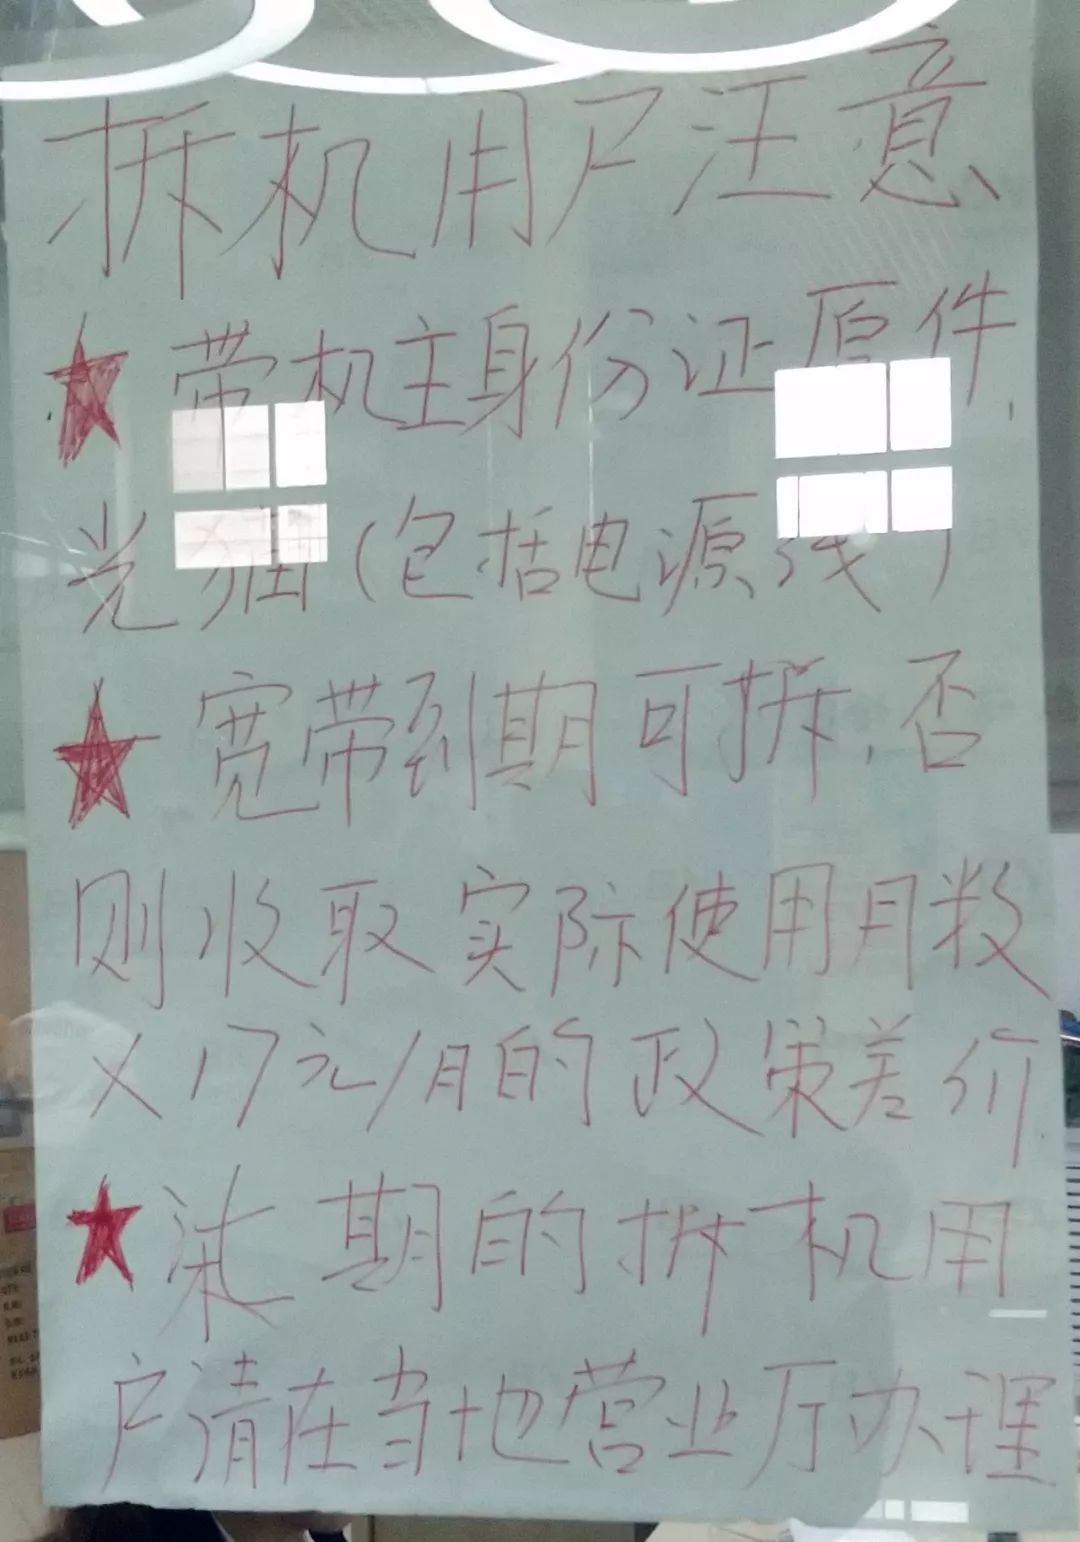 拆机用户注意
★带机主身份证原件,
光猫(包括电源线)
★宽带到期可拆,否
则收取实际使用月数
×17元/月的政策差价
★期的拆机用
户请在当地营业厅办理